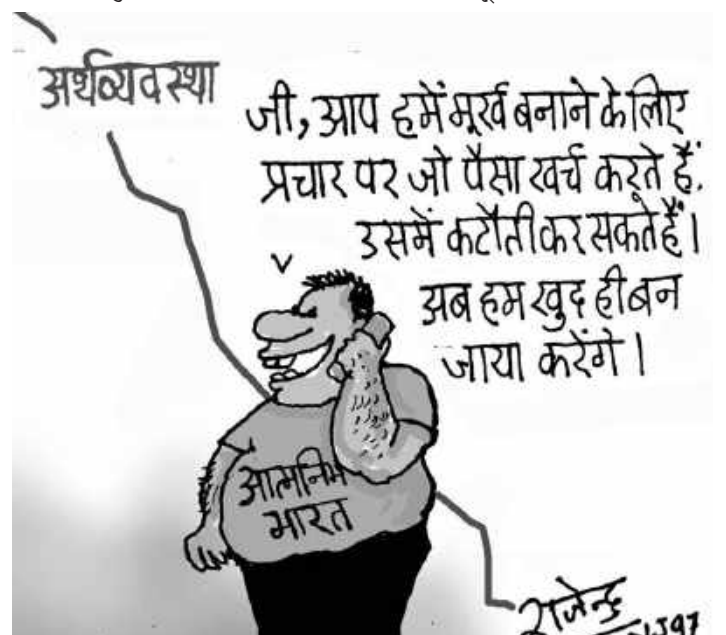 अर्थव्यवस्था
जी, आप हमें मूर्ख बनाने के लिए
प्रचार पर जो पैसा खर्च करते हैं.
उसमें कटौती कर सकते हैं।
अब हम खुद ही बन
जाया करेंगे।
आत्मनिर्भ
भारत
राजेन्द्र